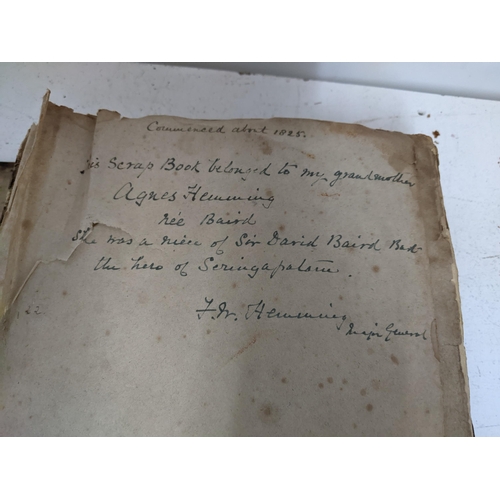 Commenced about 1825.
is Scrap Book belonged to my grandmother
Agnes Hemming
née Baird
She was a niece of Sir David Baird Bart
the hero of Seringapatam.
F. W. Hemming
Major General
22